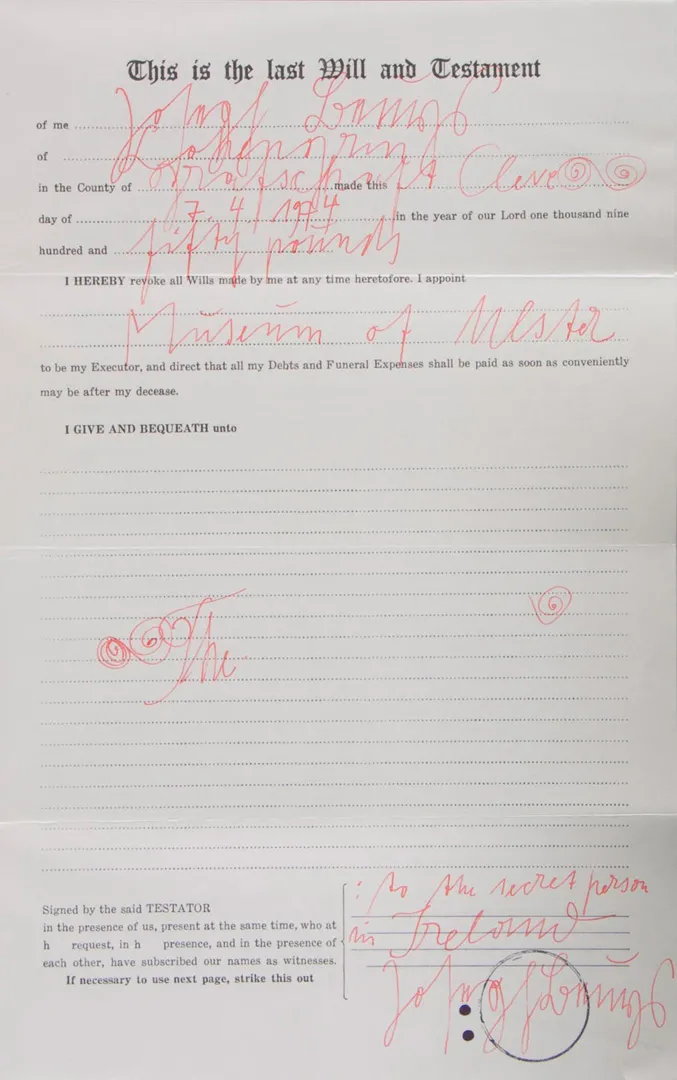 This is the last Will and Testament
of me Joseph Beuys
of Lohengrin
in the County of Grafschaft made this Cleve
day of 7. 4. 1974 in the year of our Lord one thousand nine
hundred and fifty pounds
I HEREBY revoke all Wills made by me at any time heretofore. I appoint
Museum of Ulster
to be my Executor, and direct that all my Debts and Funeral Expenses shall be paid as soon as conveniently
may be after my decease.
I GIVE AND BEQUEATH unto
The
: to the secret person
in Ireland
Joseph Beuys
Signed by the said TESTATOR
in the presence of us, present at the same time, who at
h request, in h presence, and in the presence of
each other, have subscribed our names as witnesses.
If necessary to use next page, strike this out